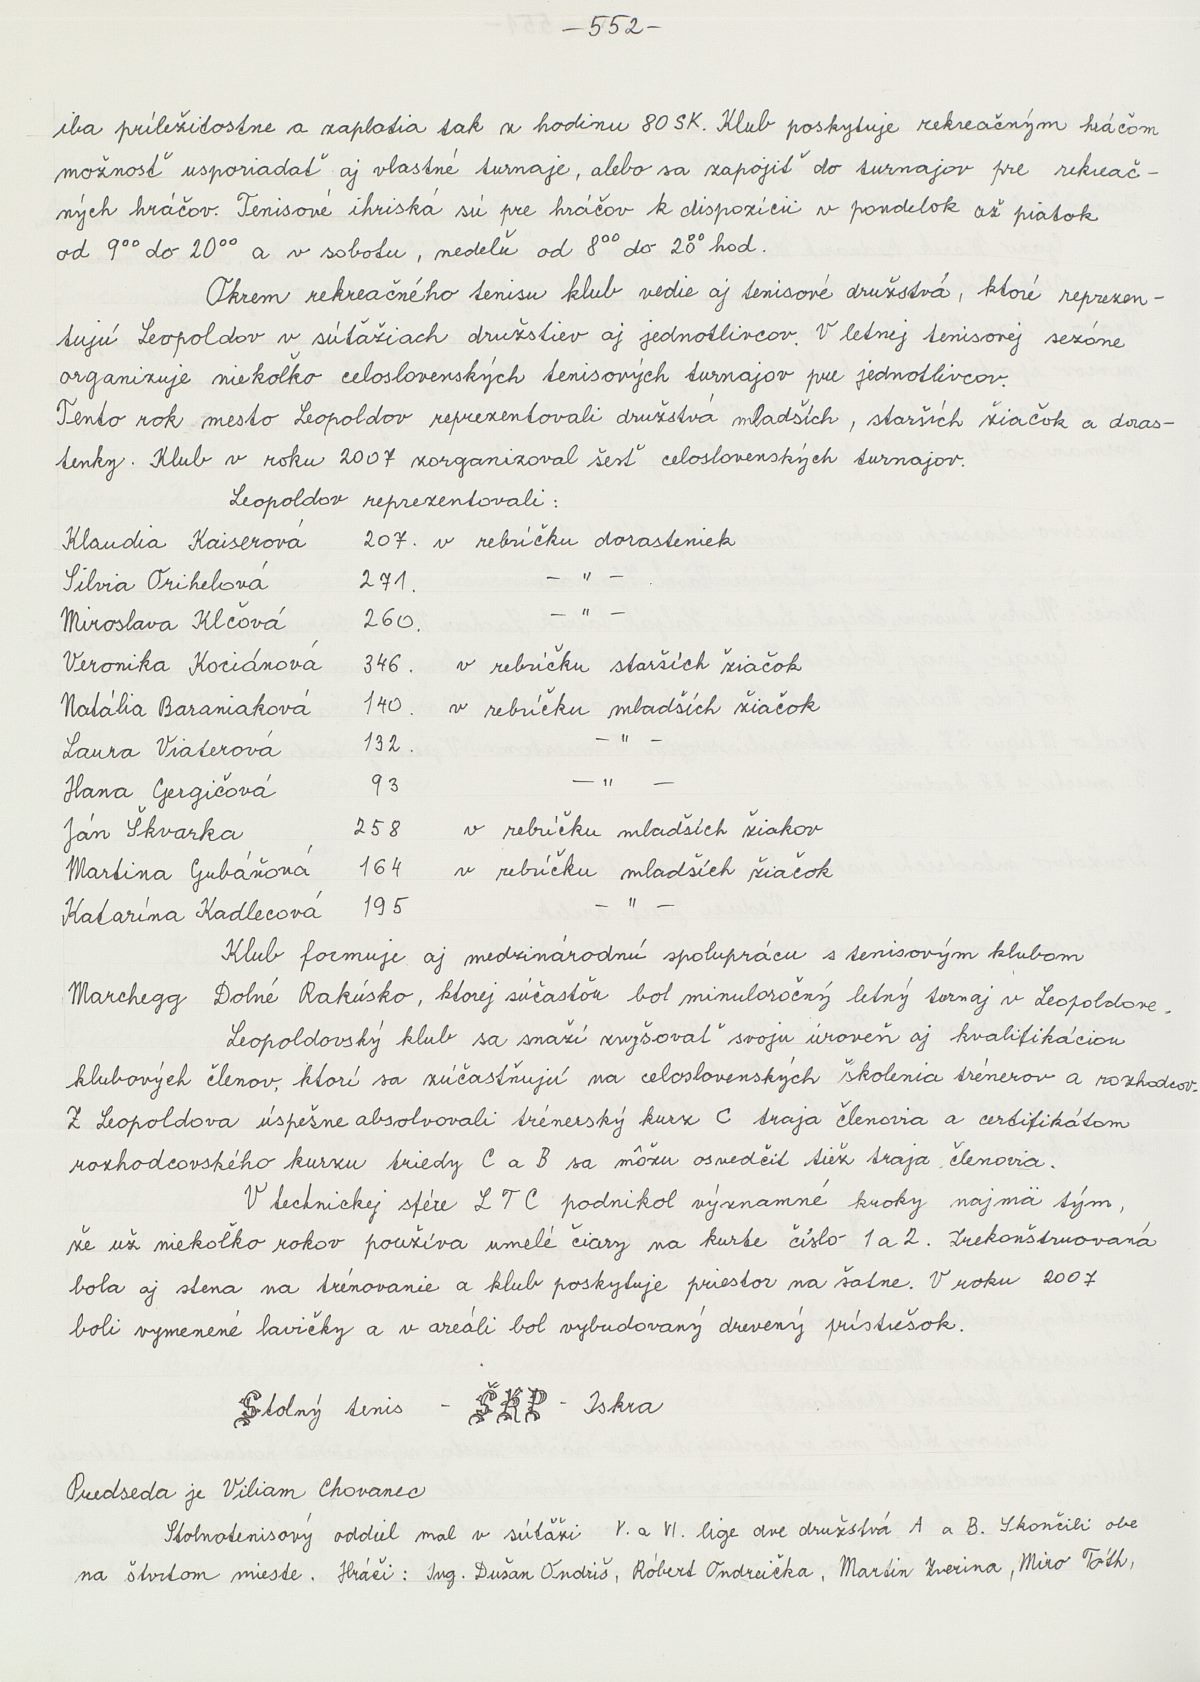 - 552 -
iba príležitostne a zaplatia tak z hodinu 80 SK. Klub poskytuje rekreačným hráčom
možnosť usporiadať aj vlastné turnaje, alebo sa zapojiť do turnajov pre rekreač-
ných hráčov. Tenisové ihriská sú pre hráčov k dispozícii v pondelok až piatok
od 9⁰⁰ do 20⁰⁰ a v sobotu, nedeľu od 8⁰⁰ do 20⁰⁰ hod.
Okrem rekreačného tenisu klub vedie aj tenisové družstvá, ktoré reprezen-
tujú Leopoldov v súťažiach družstiev aj jednotlivcov. V letnej tenisovej sezóne
organizuje niekoľko celoslovenských tenisových turnajov pre jednotlivcov.
Tento rok mesto Leopoldov reprezentovali družstvá mladších, starších žiačok a doras-
tenky. Klub v roku 2007 zorganizoval šesť celoslovenských turnajov.
Leopoldov reprezentovali:
Klaudia Kaiserová 207. v rebríčku dorasteniek
Silvia Orihelová 271. - " -
Miroslava Klčová 260. - " -
Veronika Kociánová 346. v rebríčku starších žiačok
Natália Baraniaková 140. v rebríčku mladších žiačok
Laura Viaterová 132. - " -
Hana Gergičová 93 - " -
Ján Škvarka 258 v rebríčku mladších žiakov
Martina Gubáňová 164 v rebríčku mladších žiačok
Katarína Kadlecová 195 - " -
Klub formuje aj medzinárodnú spoluprácu s tenisovým klubom
Marchegg Dolné Rakúsko, ktorej súčasťou bol minuloročný letný turnaj v Leopoldove.
Leopoldovský klub sa snaží zvyšovať svoju úroveň aj kvalifikáciou
klubových členov, ktorí sa zúčastňujú na celoslovenských školenia trénerov a rozhodcov.
Z Leopoldova úspešne absolvovali trénerský kurz C traja členovia a certifikátom
rozhodcovského kurzu triedy C a B sa môžu osvedčiť tiež traja členovia.
V technickej sfére LTC podnikol významné kroky najmä tým,
že už niekoľko rokov používa umelé čiary na kurte číslo 1 a 2. Zrekonštruovaná
bola aj stena na trénovanie a klub poskytuje priestor na šatne. V roku 2007
boli vymenené lavičky a v areáli bol vybudovaný drevený prístrešok.
Stolný tenis - ŠKP - Iskra
Predseda je Viliam Chovanec
Stolnotenisový oddiel mal v súťaži V. a VI. lige dve družstvá A a B. Skončili obe
na štvrtom mieste. Hráči: Ing. Dušan Ondriš, Róbert Ondreička, Martin Zverina, Miro Tóth,